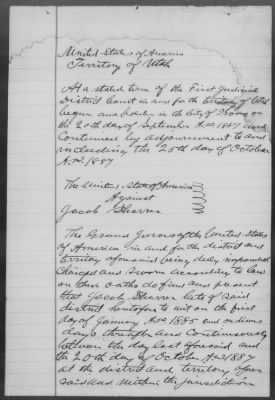 United States of America
Territory of Utah
At a stated term of the First Judicial
District Court in and for the territory of Utah
begun and holden in the City of Provo on
the 20th day of September A.D. 1887 and
Continued by adjournment to and
including the 25th day of October
A.D. 1887
The United States of America
Against
Jacob
The Grand Jurors of the United States
of America in and for the district and
territory aforesaid being duly impaneled
charged and sworn according to law
on their oaths do find and present
that Jacob late of said
district heretofore to wit on the first
day of January A.D. 1885 and on divers
days thereafter and Continuously
between the day last aforesaid and
the 20th day of October A.D. 1887
at the district and territory afore
said and within the jurisdiction